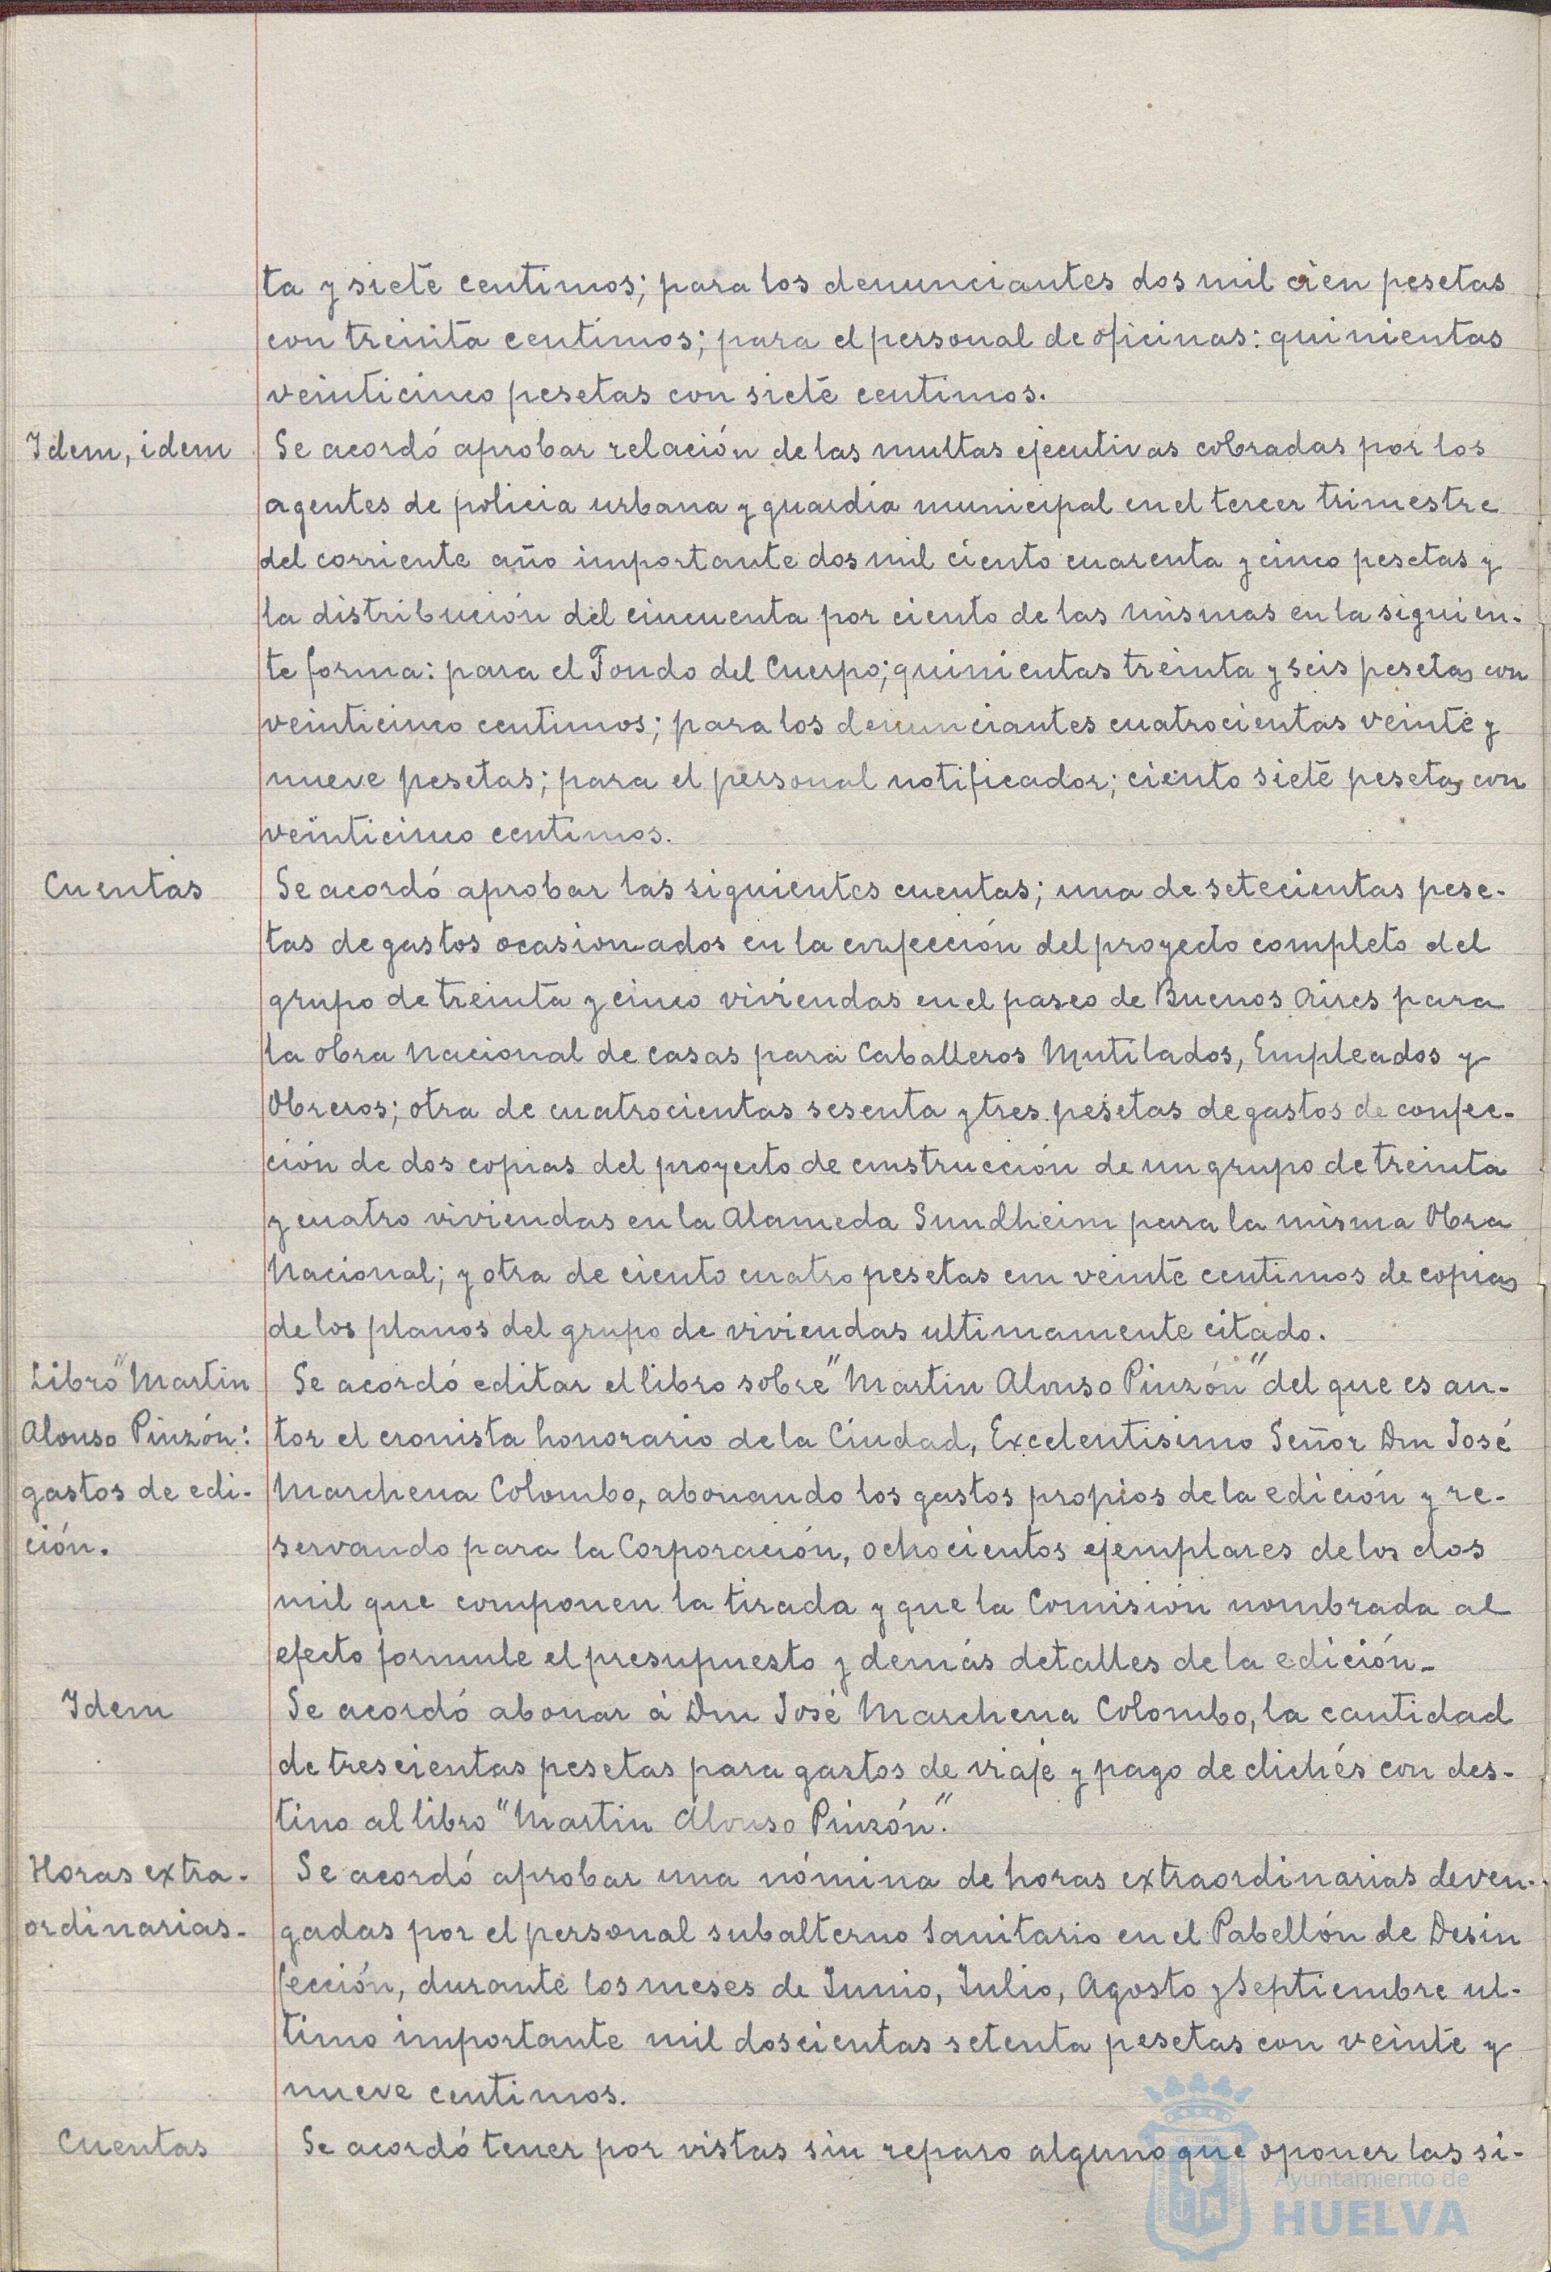 ta y siete centimos; para los denunciantes dos mil cien pesetas
con treinta centimos; para el personal de oficinas: quinientas
veinticinco pesetas con siete centimos.
Idem, idem Se acordó aprobar relación de las multas ejecutivas cobradas por los
agentes de policia urbana y guardia municipal en el tercer trimestre
del corriente año importante dos mil ciento cuarenta y cinco pesetas y
la distribución del cincuenta por ciento de las mismas en la siguien-
te forma: para el Fondo del Cuerpo; quinientas treinta y seis pesetas con
veinticinco centimos; para los denunciantes cuatrocientas veinte y
nueve pesetas; para el personal notificador; ciento siete pesetas con
veinticinco centimos.
Cuentas Se acordó aprobar las siguientes cuentas; una de setecientas pese-
tas de gastos ocasionados en la confección del proyecto completo del
grupo de treinta y cinco viviendas en el paseo de Buenos Aires para
la obra Nacional de casas para Caballeros Mutilados, Empleados y
Obreros; otra de cuatrocientas sesenta y tres pesetas de gastos de confec-
ción de dos copias del proyecto de construcción de un grupo de treinta
y cuatro viviendas en la Alameda Sundheim para la misma Obra
Nacional; y otra de ciento cuatro pesetas con veinte centimos de copias
de los planos del grupo de viviendas ultimamente citado.
Libro "Martin Se acordó editar el libro sobre "Martin Alonso Pinzón" del que es au-
Alonso Pinzón: tor el cronista honorario de la Ciudad, Excelentisimo Señor Don José
gastos de edi- Marchena Colombo, abonando los gastos propios de la edición y re-
ción. servando para la Corporación, ochocientos ejemplares de los dos
mil que componen la tirada y que la Comisión nombrada al
efecto formule el presupuesto y demás detalles de la edición-
Idem Se acordó abonar á Don José Marchena Colombo, la cantidad
de trescientas pesetas para gastos de viaje y pago de clichés con des-
tino al libro "Martin Alonso Pinzón".
Horas extra- Se acordó aprobar una nómina de horas extraordinarias deven-
ordinarias- gadas por el personal subalterno Sanitario en el Pabellón de Desin
fección, durante los meses de Junio, Julio, Agosto y Septiembre ul-
timo importante mil doscientas setenta pesetas con veinte y
nueve centimos.
Cuentas Se acordó tener por vistas sin reparo alguno que oponer las si-
Ayuntamiento de
HUELVA